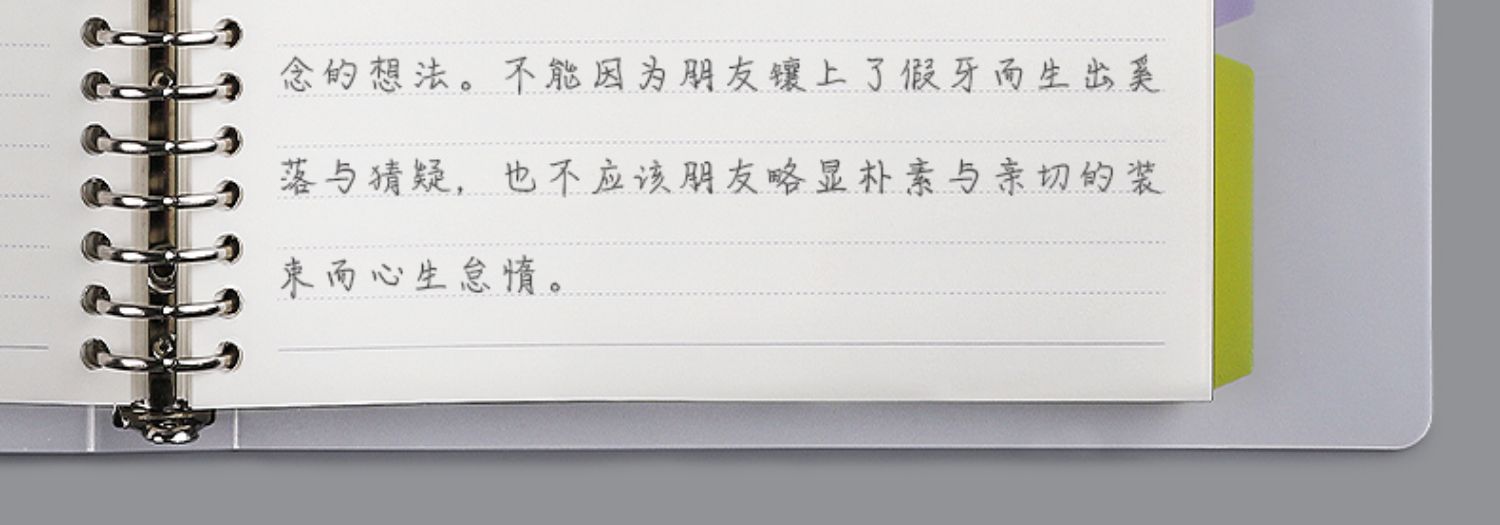 念的想法。不能因为朋友镶上了假牙而生出奚
落与猜疑，也不应该朋友略显朴素与亲切的装
束而心生怠惰。